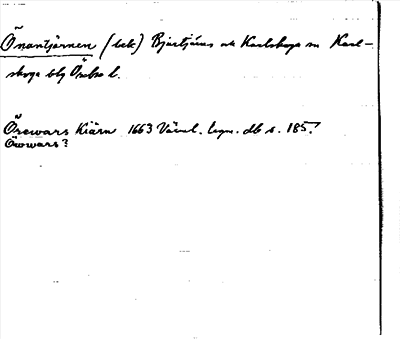 Õnantjärnen (bek) Bjurtjärns och Karlskoga sn Karl-
skoga blg Örebro l.
Õrewars Kiärn 1663 Värml. legn. db s. 185.
Öwwars?